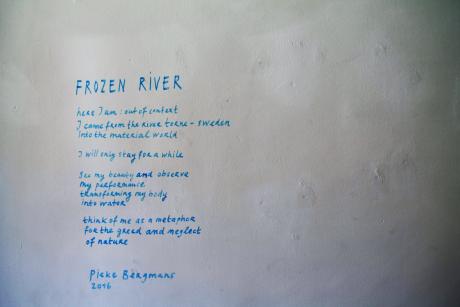 FROZEN RIVER
here I am : out of context
I came from the river torne - sweden
into the material world
I will only stay for a while
See my beauty and observe
my performance
transforming my body
into water
think of me as a metaphor
for the greed and neglect
of nature
Pieke Bergmans
2016